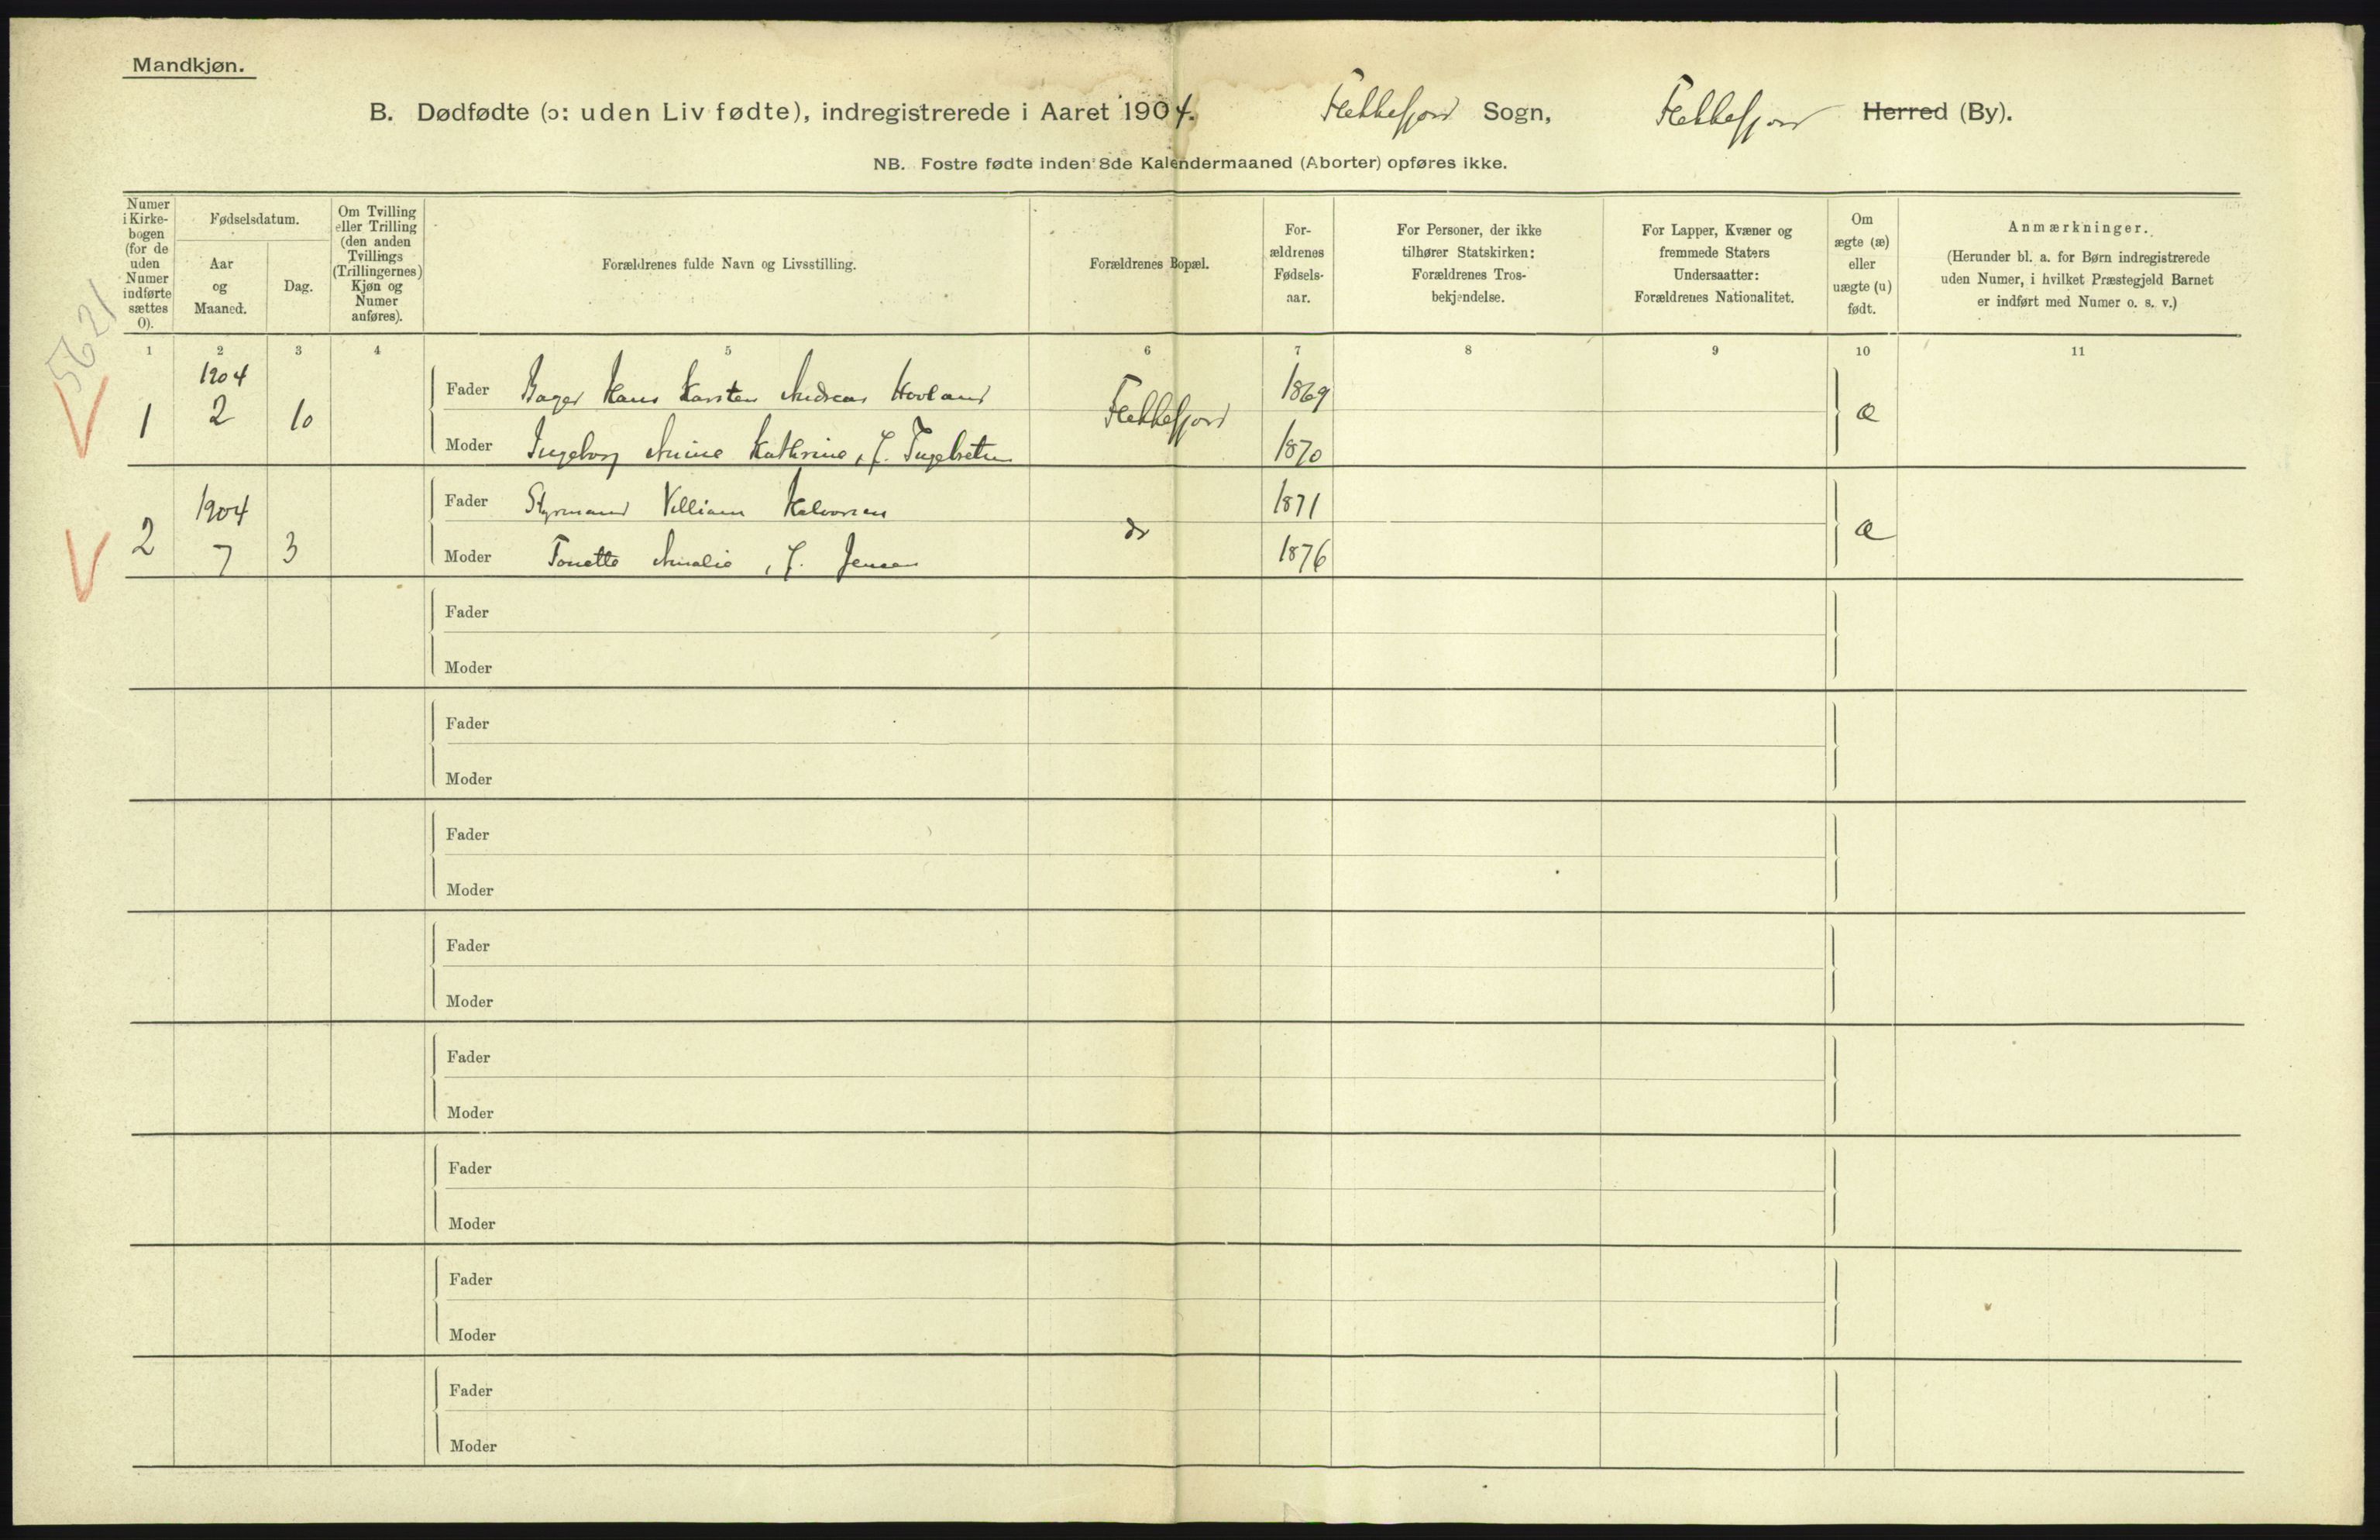 Mandkjøn.
B. Dødfødte (ɔ: uden Liv fødte), indregistrerede i Aaret 1904. Flekkefjord Sogn, Flekkefjord Herred (By).
NB. Fostre fødte inden 8de Kalendermaaned (Aborter) opføres ikke.
Numer
i Kirke-
bogen
(for de
uden
Numer
indførte
sættes
0).
Fødselsdatum.
Aar
og
Maaned.
Dag.
Om Tvilling
eller Trilling
(den anden
Tvillings
(Trillingernes)
Kjøn og
Numer
anføres).
Forældrenes fulde Navn og Livsstilling.
Forældrenes Bopæl.
For-
ældrenes
Fødsels-
aar.
For Personer, der ikke
tilhører Statskirken:
Forældrenes Tros-
bekjendelse.
For Lapper, Kvæner og
fremmede Staters
Undersaatter:
Forældrenes Nationalitet.
Om
ægte (æ)
eller
uægte (u)
født.
Anmærkninger.
(Herunder bl. a. for Børn indregistrerede
uden Numer, i hvilket Præstegjeld Barnet
er indført med Numer o. s. v.)
5621
1 2 3 4 5 6 7 8 9 10 11
1904
Fader Bager Hans Karsten Andreas Hovland 1869
1 2 10 Flekkefjord æ
Moder Ingeborg Anine Kathrine, f. Ingebretsen 1870
Fader Styrmand Villiam Halvorsen 1871
1904
2 7 3 do æ
Moder Tonette Amalie, f. Jensen 1876
Fader
Moder
Fader
Moder
Fader
Moder
Fader
Moder
Fader
Moder
Fader
Moder
Fader
Moder
Fader
Moder